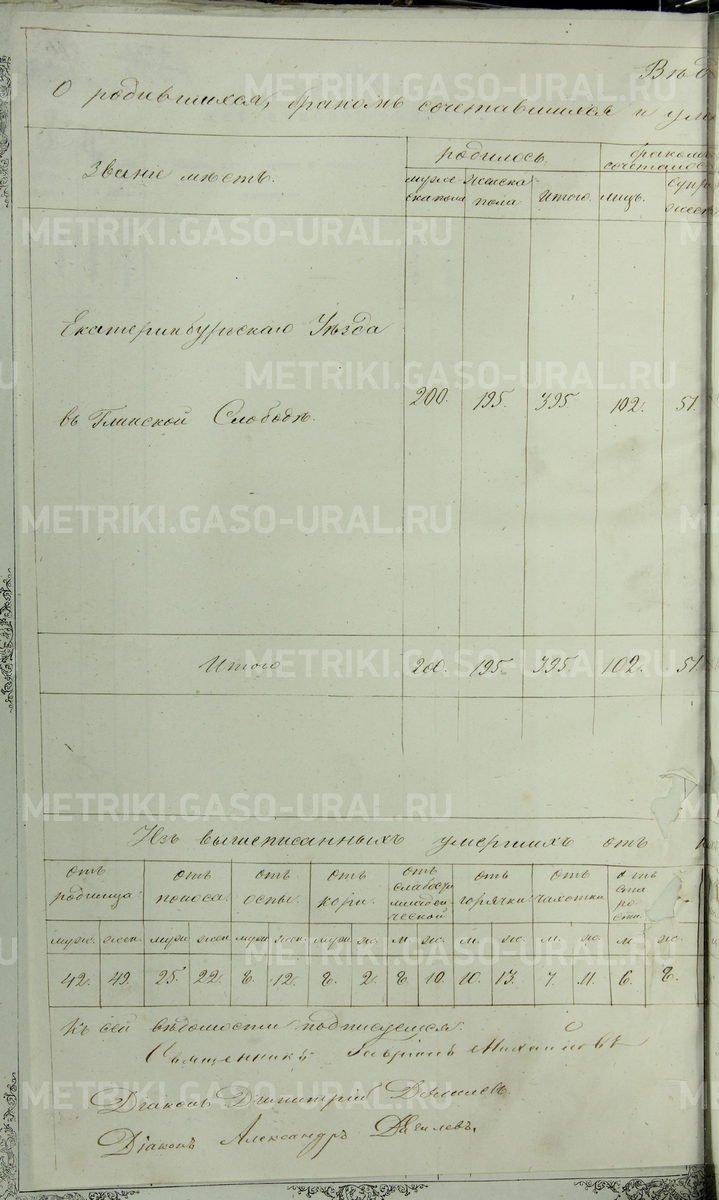 Вѣд
О родившихся, бракомъ сочетавшихся и уме
Званіе мѣстъ.
родилось
бракомъ сочеталось
мужеска пола
женска пола
Итого
лицъ.
супружест
Екатеринбургскаго Уѣзда
въ Глинской Слободѣ.
200. 195. 395. 102. 51.
Итого 200. 195. 395. 102. 51.
Изъ вышеписанныхъ умершихъ отъ
отъ родимца.
отъ поноса.
отъ оспы.
отъ кори.
отъ слабости младенческой
отъ горячки.
отъ чахотки
отъ старости.
муж. жен. муж. жен. муж. жен. муж. же. м. же. м. же. м. же. м. же.
42. 49. 25. 22. 8. 12. 8. 2. 8. 10. 10. 13. 7. 11. 6. 8.
Къ сей вѣдомости подписуемся.
Священникъ Гавріилъ Михайловъ
Діаконъ Димитрій
Діаконъ Александръ
METRIKI.GASO-URAL.RU